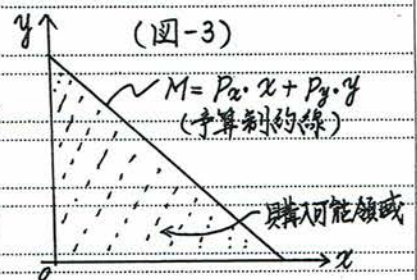 y
(図-3)
M = Px・x + Py・y
(予算制約線)
購入可能領域
x
0